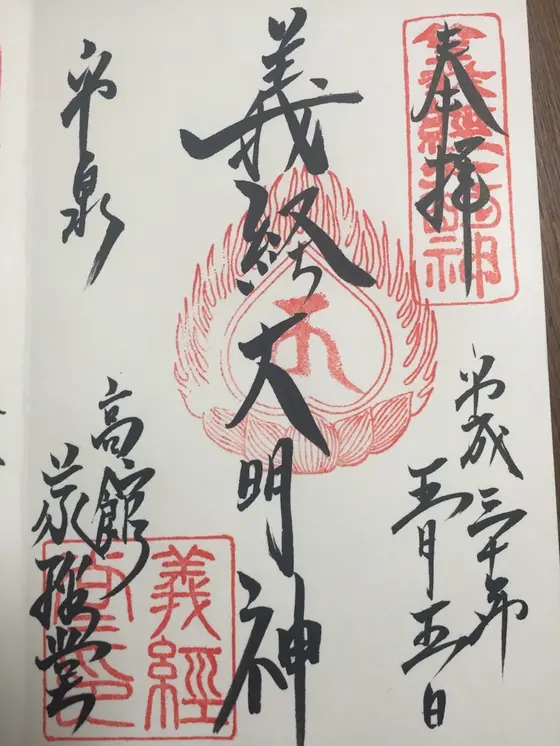 奉拝
平成三十年
五月五日
義経大明神
平泉
高館
義経堂
義經大明神
義經
堂印